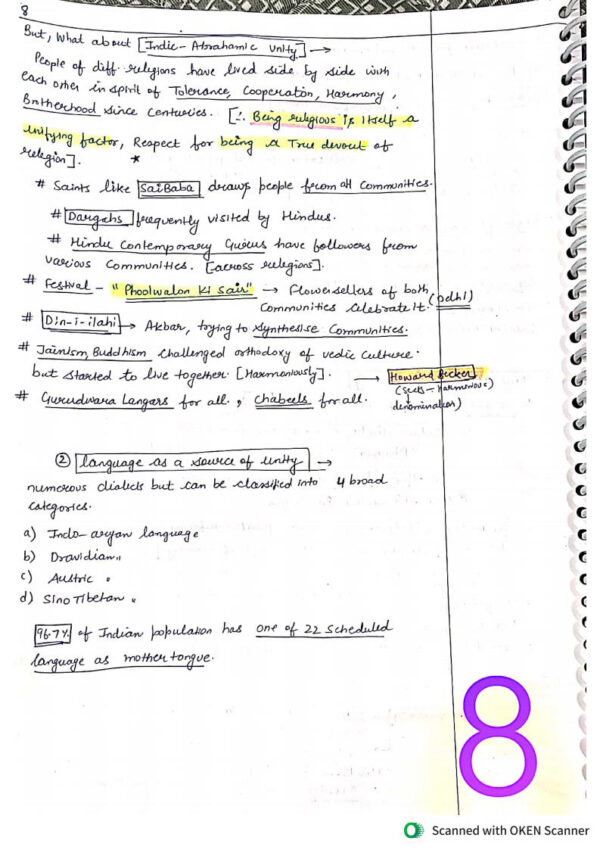 8
But, What about [Indic-Abrahamic Unity] →
People of diff. religions have lived side by side with
each other in spirit of Tolerance, Cooperation, Harmony,
Brotherhood since centuries. [∴ Being religious is itself a
unifying factor, Respect for being a True devout of
religion].
# Saints like SaiBaba draws people from all communities.
# Dargahs frequently visited by Hindus.
# Hindu Contemporary Gurus have followers from
various Communities. [across religions].
# Festival - "Phoolwalon Ki Sair" → Flowersellers of both
Communities celebrate it. (Delhi)
# Din-i-ilahi → Akbar, trying to synthesise Communities.
# Jainism, Buddhism challenged orthodoxy of vedic culture.
but started to live together [Harmoniously]. → Howard Becker
(Sects - Harmonious)
denomination)
# Gurudwara Langars for all, Chabeels for all.
② language as a source of unity →
numerous dialects but can be classified into 4 broad
categories.
a) Indo-aryan language
b) Dravidian "
c) Austric "
d) Sino Tibetan "
96.7% of Indian population has one of 22 scheduled
language as mother tongue.
8
Scanned with OKEN Scanner